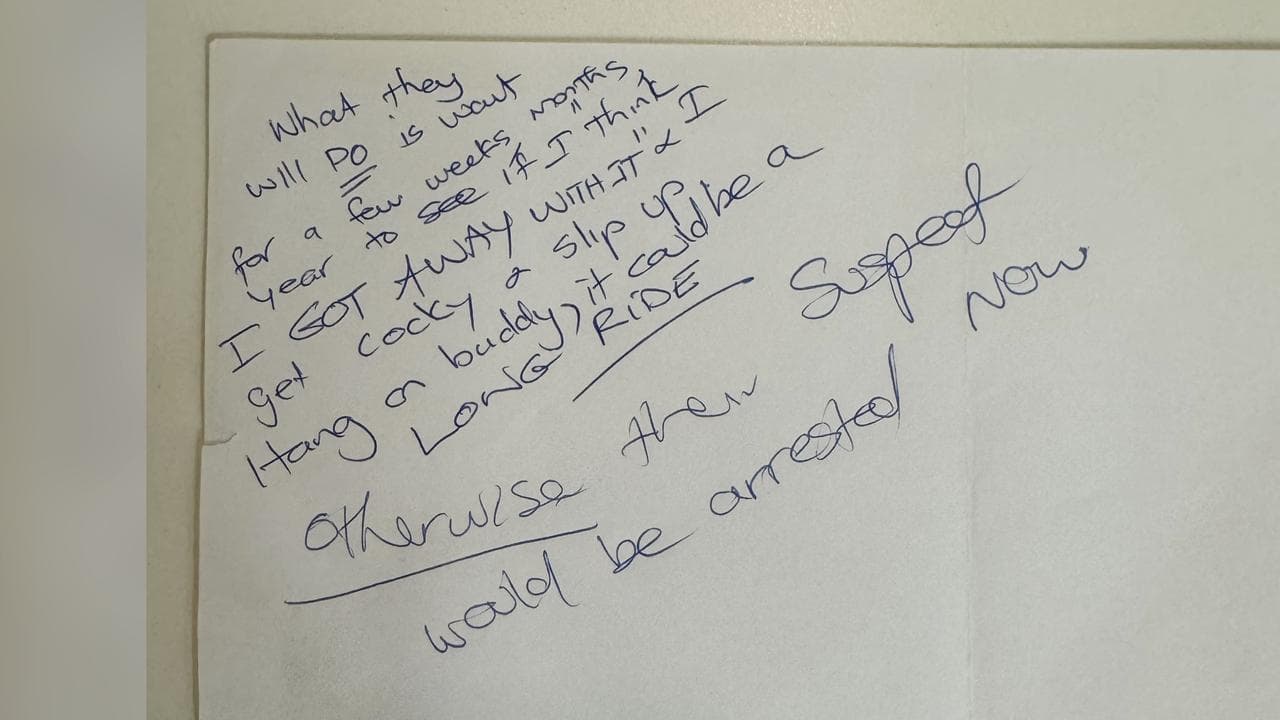 What they
will DO is want
for a few weeks months
year to see if I think
I GOT AWAY WITH IT" & I
get cocky & slip up
Hang on buddy, it could be a
LONG RIDE
otherwise their Suspect
would be arrested Now